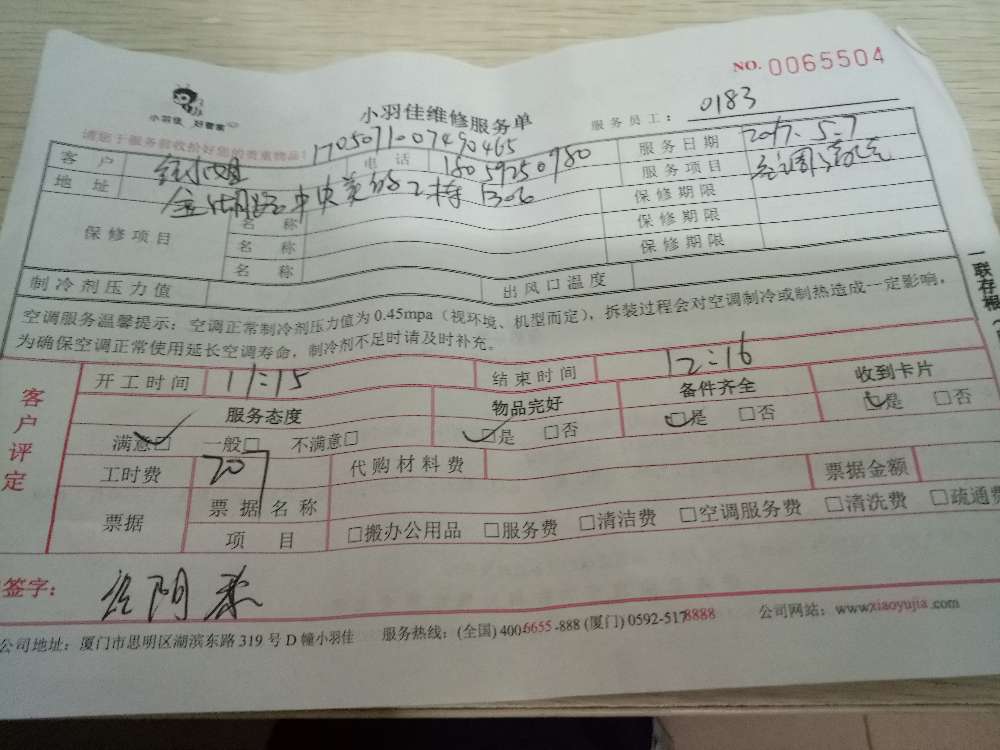 NO. 0065504
小羽佳 好管家
小羽佳维修服务单
服务员工: 0183
请您于服务前收价好您的贵重物品!
1705071007490465
客户 电话 18059250980 服务日期 2017.5.7
地址 金湖路中央美 2 服务项目 空调
保修项目 名称 保修期限
名称 保修期限
名称 保修期限
制冷剂压力值 出风口温度
空调服务温馨提示: 空调正常制冷剂压力值为0.45mpa(视环境、机型而定), 拆装过程会对空调制冷或制热造成一定影响,
为确保空调正常使用延长空调寿命, 制冷剂不足时请及时补充。
一联存根
客户评定
开工时间 11:15 结束时间 12:16
服务态度 物品完好 备件齐全 收到卡片
满意□ 一般□ 不满意□ □是 □否 □是 □否 □是 □否
工时费 20 代购材料费 票据金额
票据 票据名称
项目 □搬办公用品 □服务费 □清洁费 □空调服务费 □清洗费 □疏通费
签字:
公司地址: 厦门市思明区湖滨东路319号D幢小羽佳 服务热线: (全国) 4006655-888 (厦门) 0592-5178888 公司网站: www.xiaoyujia.com